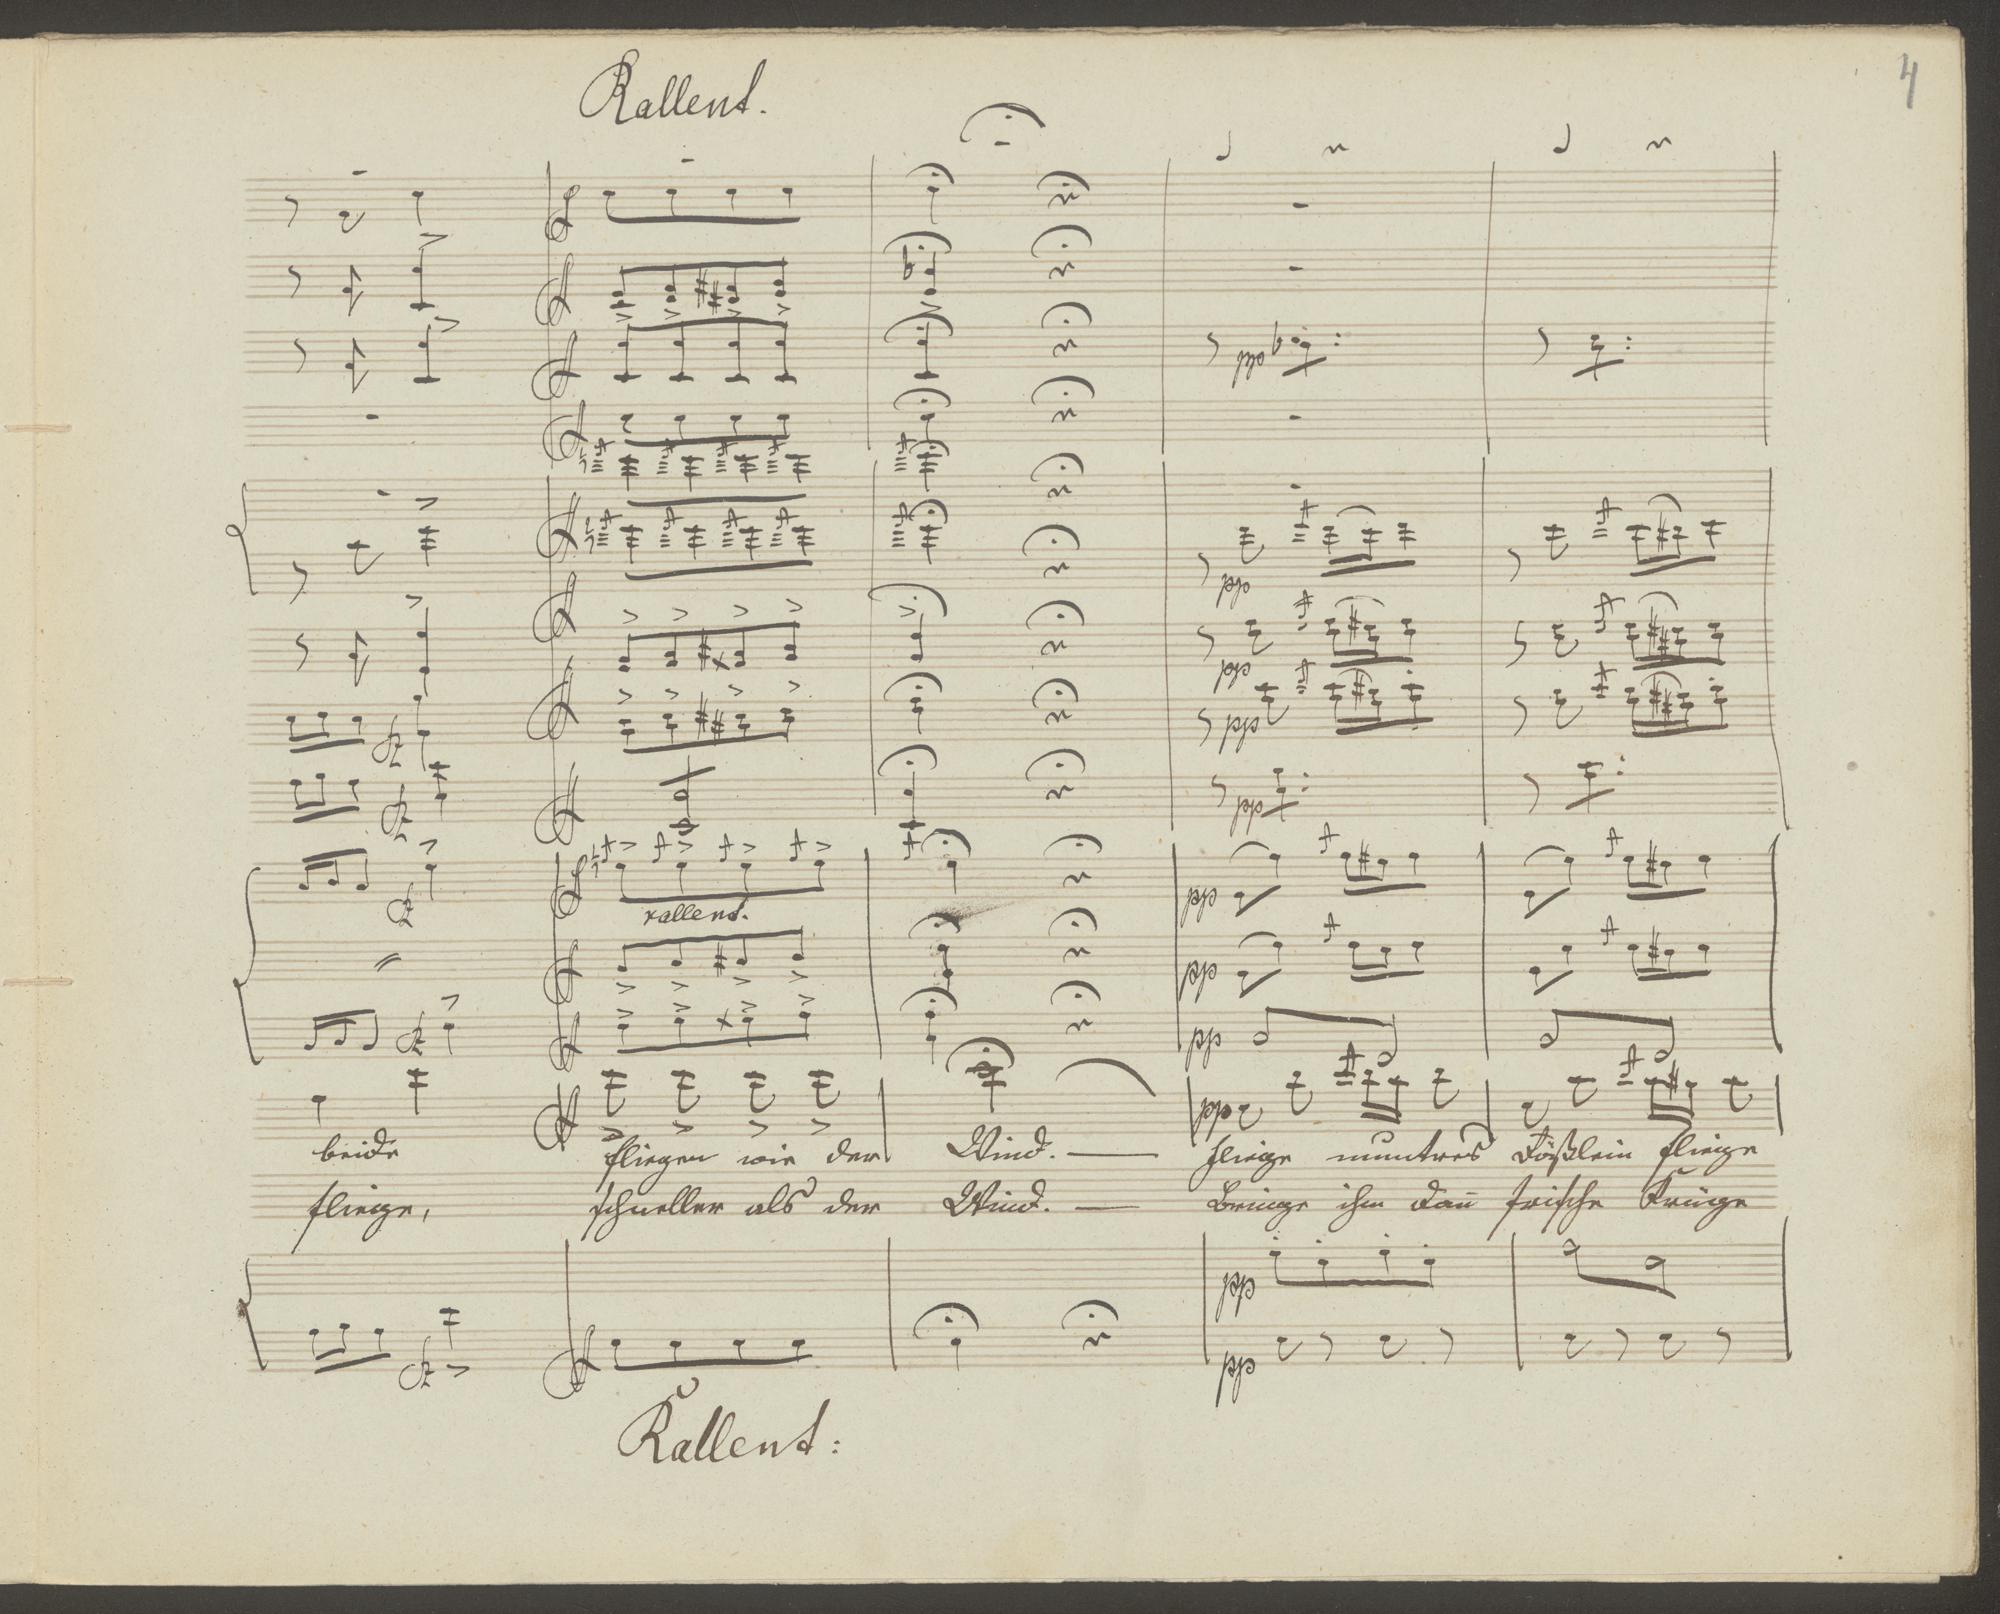 4
Rallent.
pp
pp
pp
pp
pp
pp
rallent.
pp
pp
pp
beide fliegen wie der Wind. — fliege muntres Rößlein fliege
fliege, schneller als der Wind. — Bringe ihm dañ frische Krüge
pp
pp
Rallent: